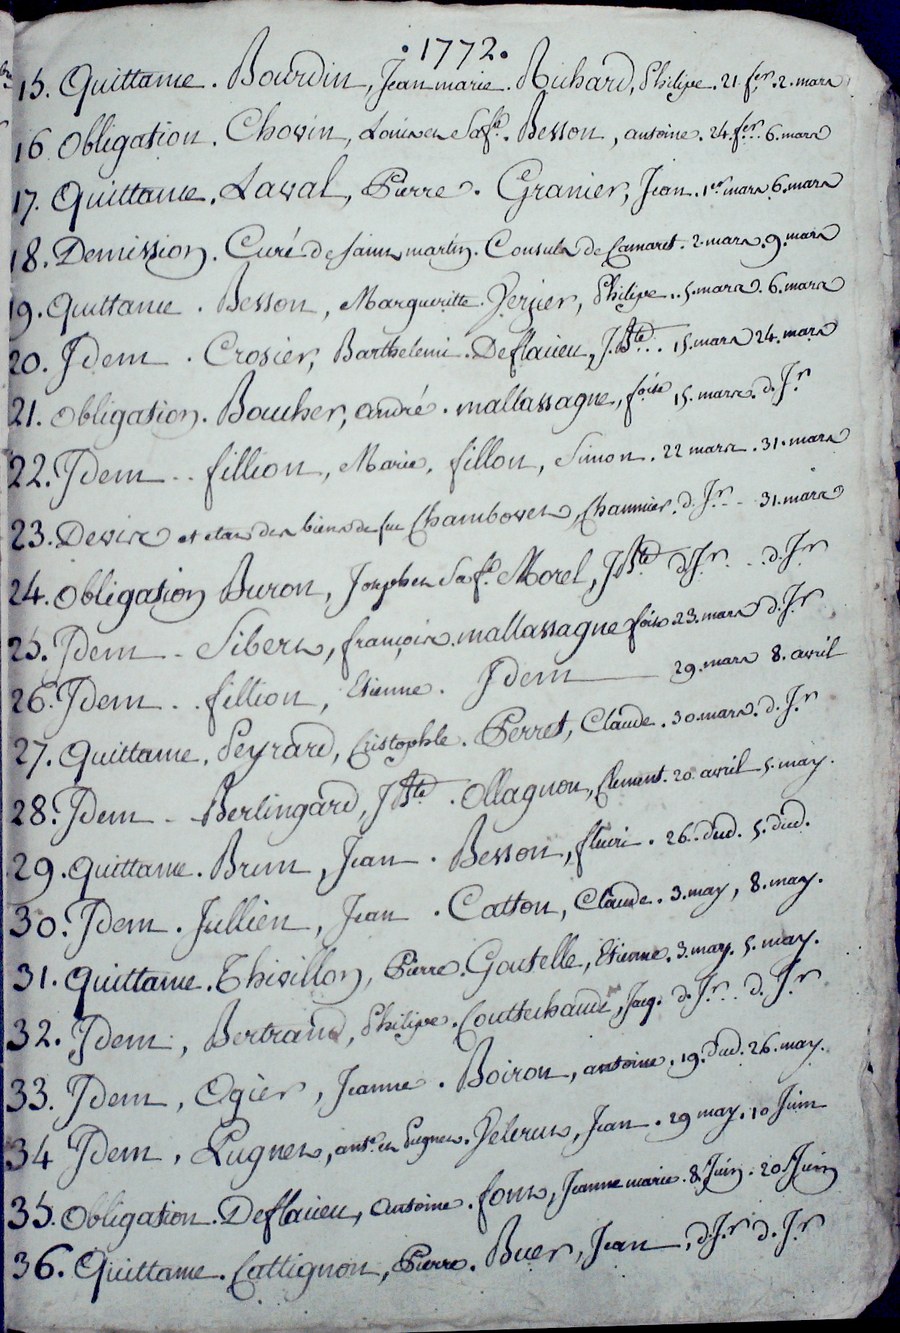 .1772.
15. Quittance. Bourdin, Jean marie. Richard, Philipe. 21. fer. 2. mars
16 Obligation. Chovin, Louis et Sa fe. Besson, antoine. 24. fer. 6. mars
17. Quittance. Laval, Pierre. Granier, Jean. 1er mars 6. mars
18. Demission. Curé de saint martin. Consuls de Camaret. 2. mars. 9. mars
19. Quittance. Besson, Margueritte. Verzier, Philipe.. 5. mars. 6. mars
20. Idem. Crosier, Barthelemi. Deflaieu, J. Bte. 15. mars 24. mars
21. Obligation. Boucher, andré. mallassagne, fois 15. mars. d. Jr
22. Idem.. fillion, Marie. fillon, Simon. 22 mars. 31. mars
23. Devise et etat des biens de feu Chambovet, Channier. d. Jr.. 31. mars
24. Obligation Buron, Joseph et Sa fe. Morel, J Bte d. Jr... d. Jr
25. Idem. Sibert, françois. mallassagne fois 23. mars d. Jr
26. Idem.. fillion, Etienne. Idem 29. mars 8. avril
27. Quittance. Peyrard, Cristophle. Perret, Claude. 30. mars. d. Jr
28. Idem. Berlingard, J Bte. Ollagnon, Clement. 20 avril 5. may.
29. Quittance. Brun, Jean. Besson, fleuri. 26. dud. 5. dud.
30. Idem. Jullien, Jean. Catton, Claude. 3. may, 8. may.
31. Quittance. Thivillon, Pierre. Goutelle, Etienne. 3. may. 5. may.
32. Idem, Bertrand, Philipe. Coutterhaude, Jaq. d. Jr.. d. Jr
33. Idem, Ogier, Jeanne. Boiron, antoine. 19. dud. 26. may.
34 Idem, Pugnet, ant. et Pugnet. Jean. 29 may. 10 Juin
35. Obligation. Deflaieu, antoine. font, Jeanne marie. 8. Juin. 20. Juin
36. Quittance. Cattignon, Pierre. Buer, Jean, d. Jr d. Jr